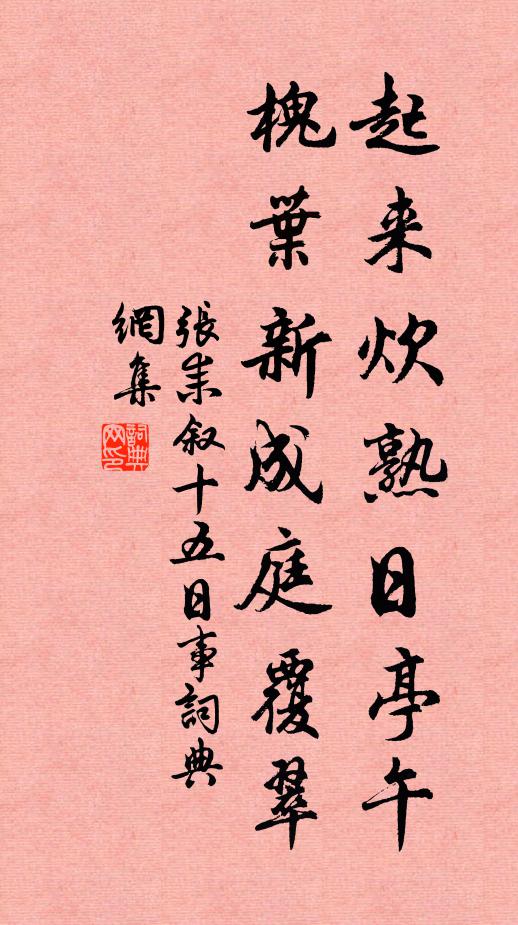 起来炊熟日亭午
槐葉新成庭覆翠
張耒叙十五日事詞典
網集
詞典
网印